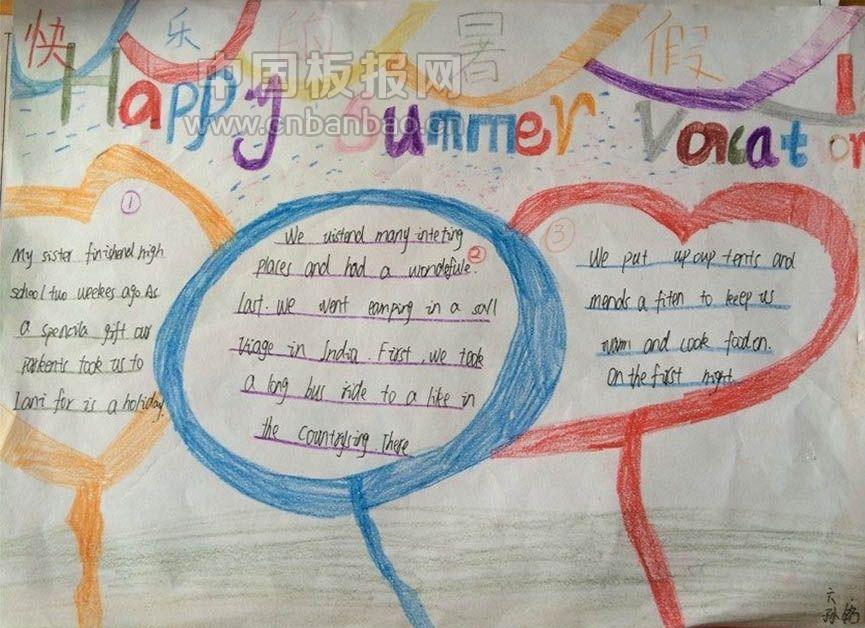 快乐的暑假
中国板报网
www.cnbanbao.cn
Happy Summer Vacation
①
My sister finishend high
school two weekes ago. As
a spencila gift our
parkents took us to
Lani for is a holiday.
②
We uistend many inteting
places and had a wondefule.
Last. We went camping in a sall
viage in India. First, we took
a long bus ride to a like in
the Countrysing. There
③
We put up oup tents and
mends a fiten to keep us
warm and cook food on.
On the first night.
六
孙